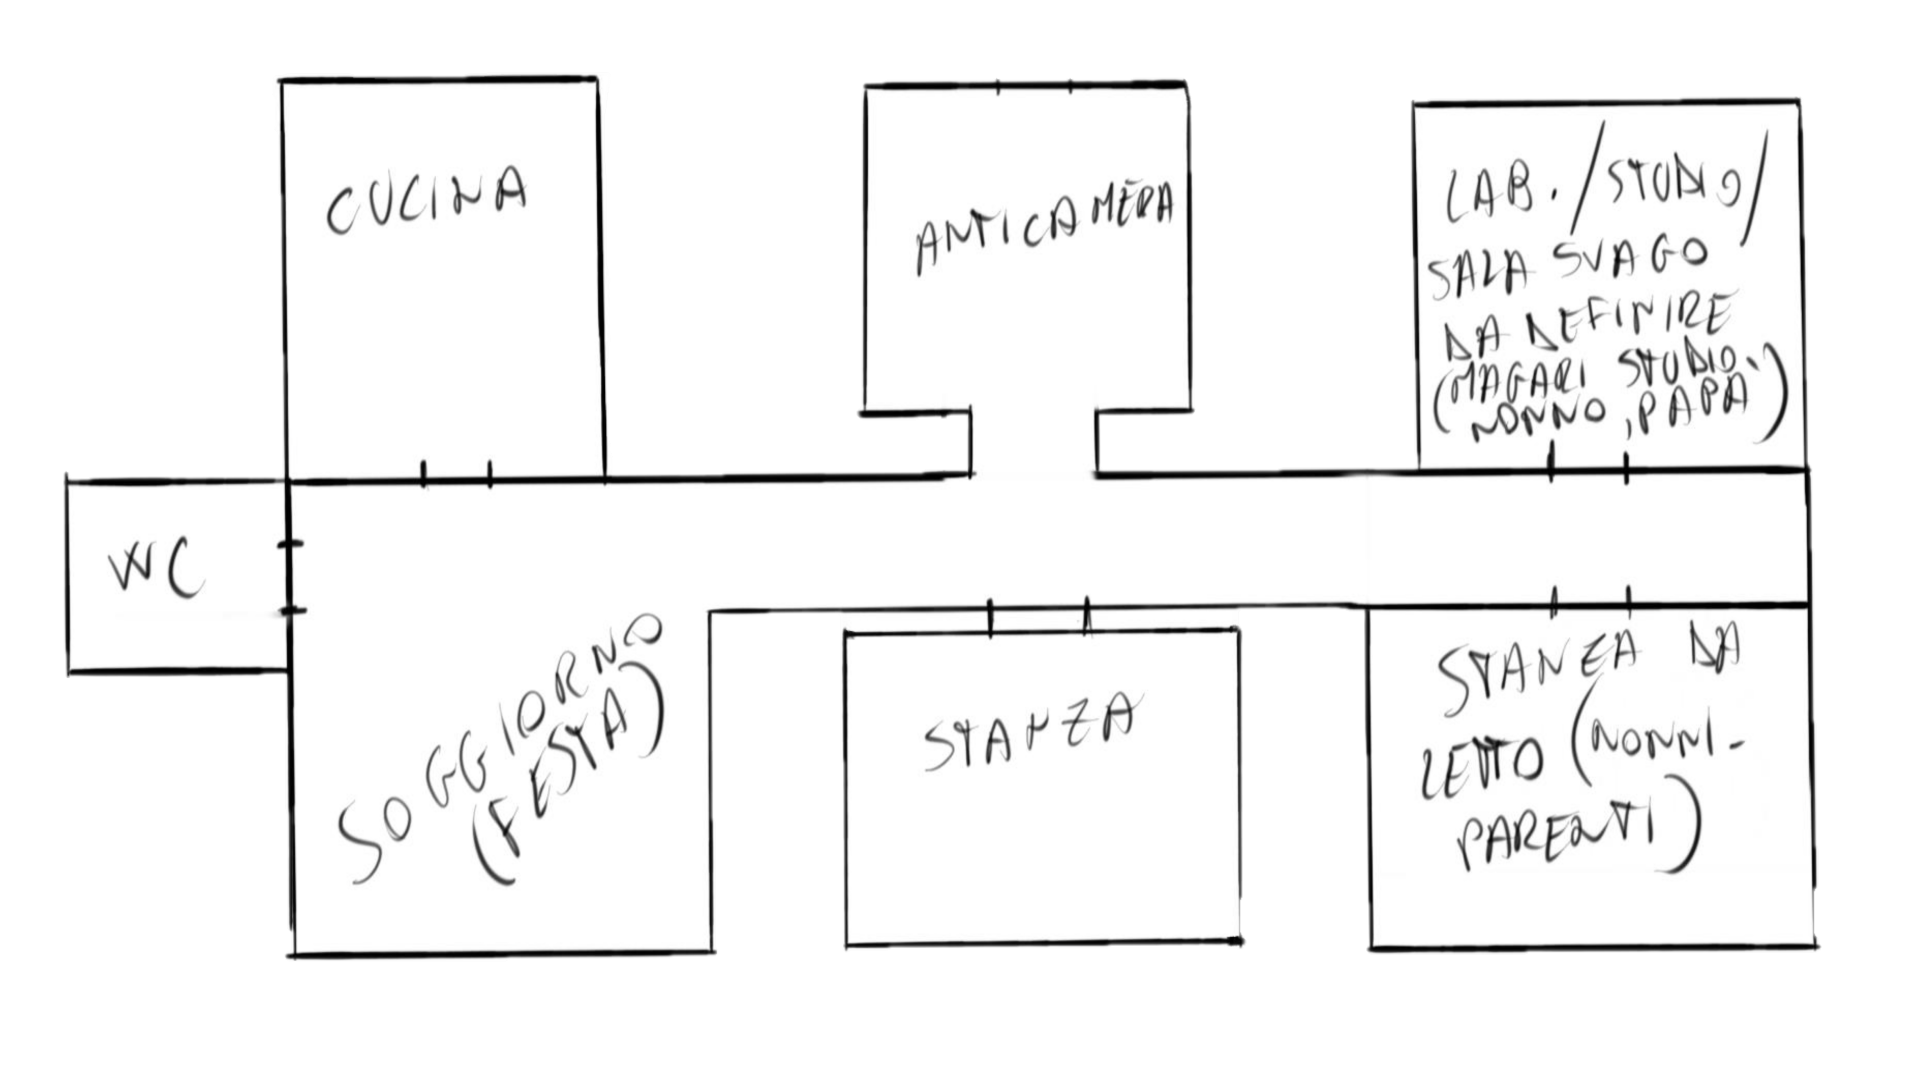 CUCINA
ANTICAMERA
LAB. / STUDIO /
SALA SVAGO
DA DEFINIRE
(MAGARI STUDIO
NONNO, PAPÀ)
WC
SOGGIORNO
(FESTA)
STANZA
STANZA DA
LETTO (NONNI-
PARENTI)